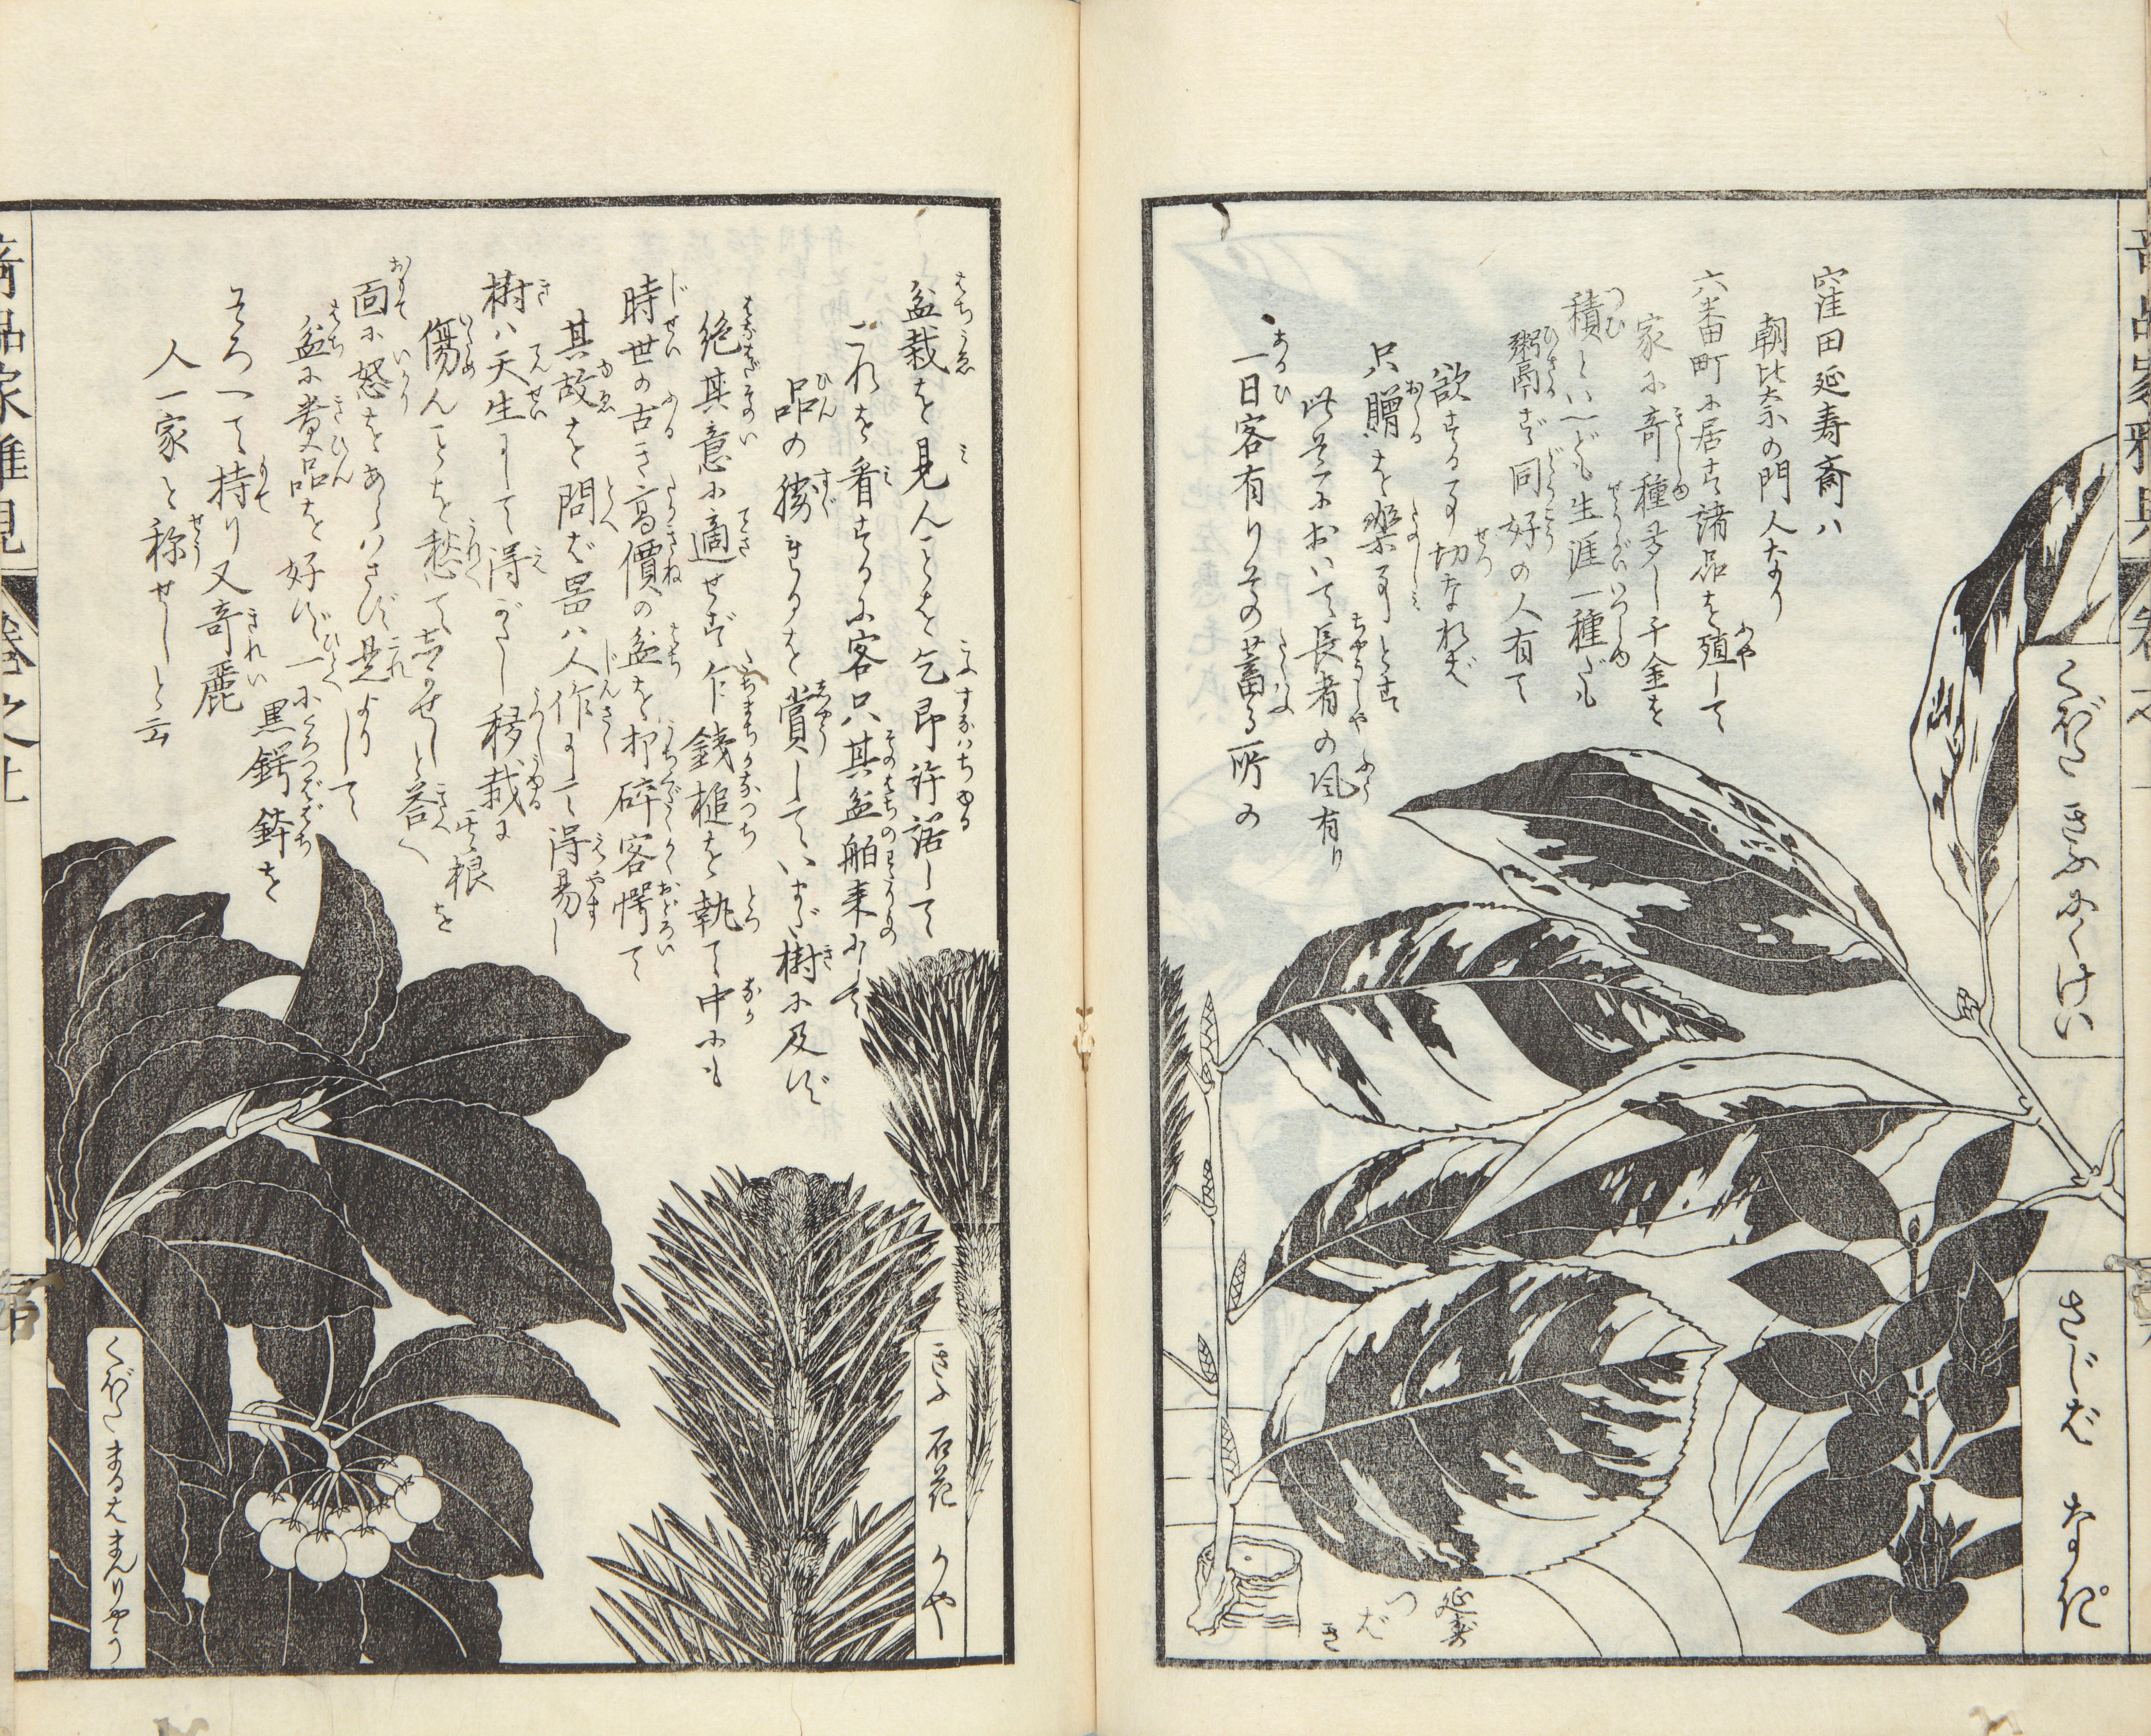 窪田延寿斎ハ
朝比奈の門人なり
六番町に居す諸品を殖して
家に奇種多し千金を
積といへども生涯一種だも
粥鬲ず同好の人有て
欲する事切なれば
只贈を楽事とす
此其一において長者の風有り
一日客有りその蓄る所の
くぼた きふ にくけい
さじば なぎ
延寿
つばき
盆栽を見んことを乞即許諾して
これを看するに客只其盆舶来にして
品の勝れるを賞していまだ樹に及ず
絶其意に適せず乍銭槌を執て中にも
時世の古き高價の盆を打砕客愕て
其故を問ば噐ハ人作にして得易し
樹ハ天生にして得がたし移栽に其根を
傷んことを愁て忘るせしと答へ
面に怒をあらハさず是よりして
盆に貴品を好ず一に黒鍔鉢を
そろへて持り又奇麗
人一家と称せしと云
きふ 石花 かや
くぼた まるはまんりやう
巻之上